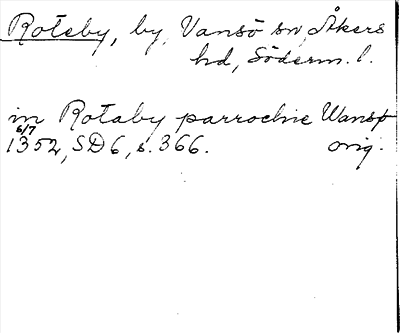 Roteby, by, Vansö sn, Åkers
hd, Söderm. l.
in Rotaby parrochie Wansø
6/7
1352, SD 6, s. 366. orig.